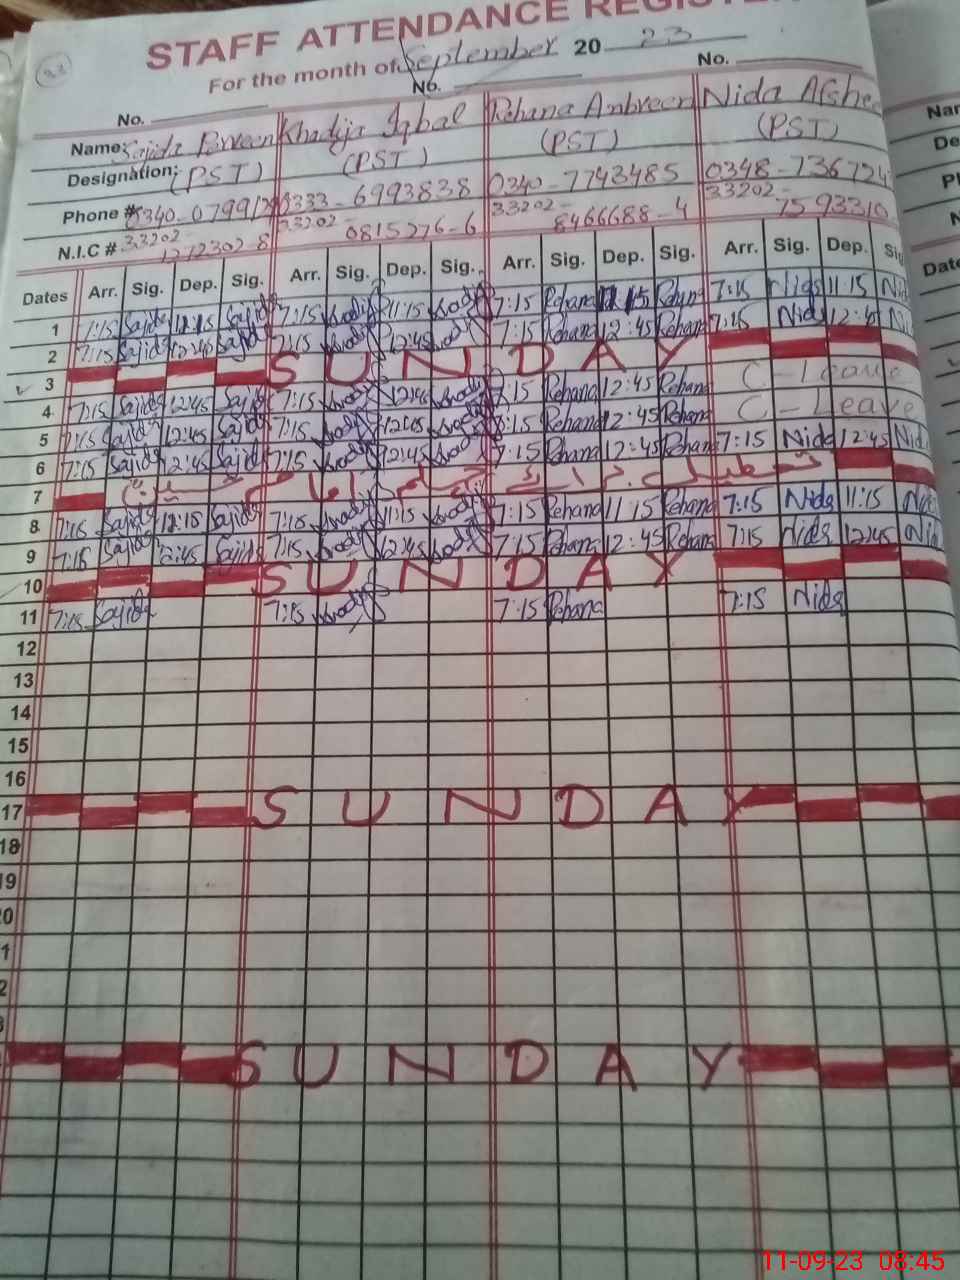 STAFF ATTENDANCE REGISTER
33
For the month of September 20 23
No. No. No.
Name: Sajida Parveen Khadija Iqbal Rehana Anbreen Nida Afshee
Designation: (PST) (PST) (PST) (PST)
Phone # 0340-079912 0333-6993838 0340-7743485 0348-736724
N.I.C # 33202-1272302-8 33202-0815276-6 33202-8466688-4 33202-7593310
Dates Arr. Sig. Dep. Sig. Arr. Sig. Dep. Sig. Arr. Sig. Dep. Sig. Arr. Sig. Dep. Sig
1 7:15 Sajida 11:15 Sajida 7:15 11:15 7:15 Rehana 11:15 Rehana 7:15 Nida 11:15 Nid
2 7:15 Sajida 12:45 Sajida 7:15 12:45 7:15 Rehana 12:45 Rehana 7:15 Nida 12:45 Ni
3 SUNDAY
4 7:15 Sajida 12:45 Sajida 7:15 12:45 7:15 Rehana 12:45 Rehana C-Leave
5 7:15 Sajida 12:45 Sajida 7:15 12:45 8:15 Rehana 12:45 Rehana C-Leave
6 7:15 Sajida 12:45 Sajida 7:15 12:45 7:15 Rehana 12:45 Rehana 7:15 Nida 12:45 Nid
7 تعطیل
8 7:15 Sajida 11:15 Sajida 7:15 11:15 7:15 Rehana 11:15 Rehana 7:15 Nida 11:15 Nid
9 7:15 Sajida 12:45 Sajida 7:15 12:45 7:15 Rehana 12:45 Rehana 7:15 Nida 12:45 Nid
10 SUNDAY
11 7:15 Sajida 7:15 7:15 Rehana 7:15 Nida
12
13
14
15
16
17 SUNDAY
18
19
20
SUNDAY
Nar
De
Pl
N
Date
11-09-23 08:45